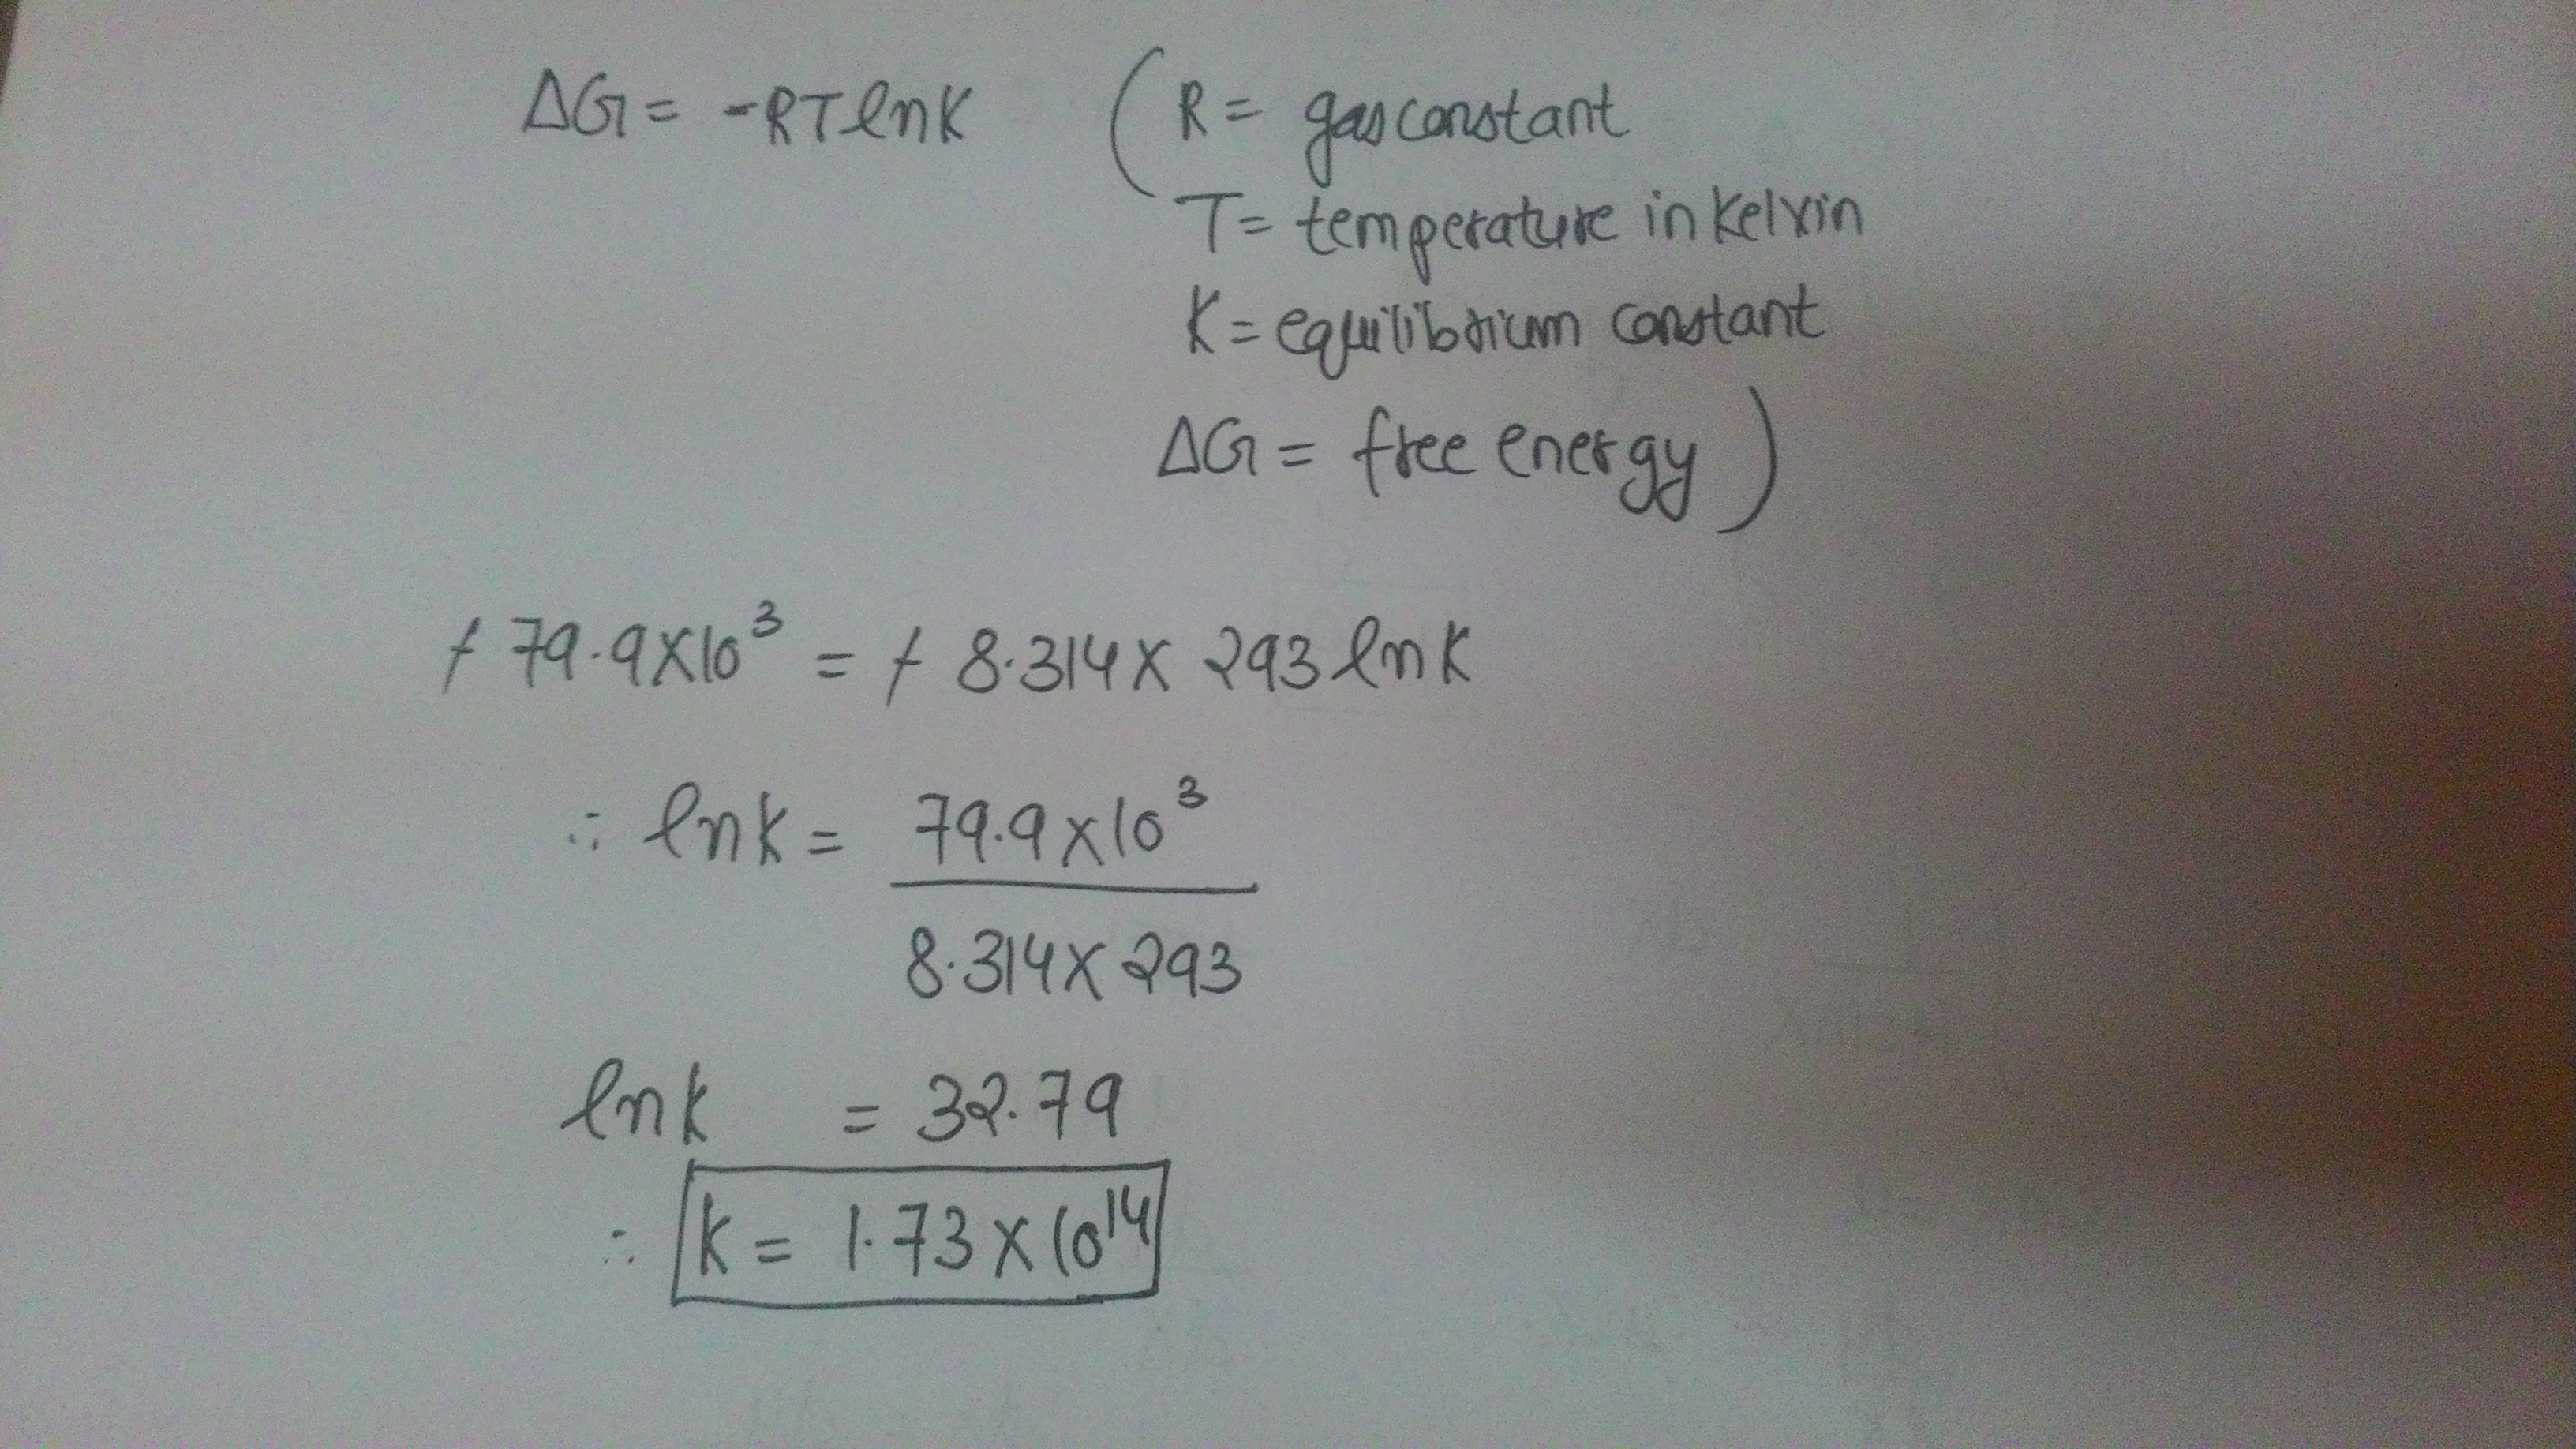 ΔG = -RT ln K (R = gas constant
T = temperature in Kelvin
K = equilibrium constant
ΔG = free energy)
̸- 79.9 × 10³ = ̸- 8.314 × 293 ln K
∴ ln K = 79.9 × 10³
8.314 × 293
ln K = 32.79
∴ K = 1.73 × 10¹⁴